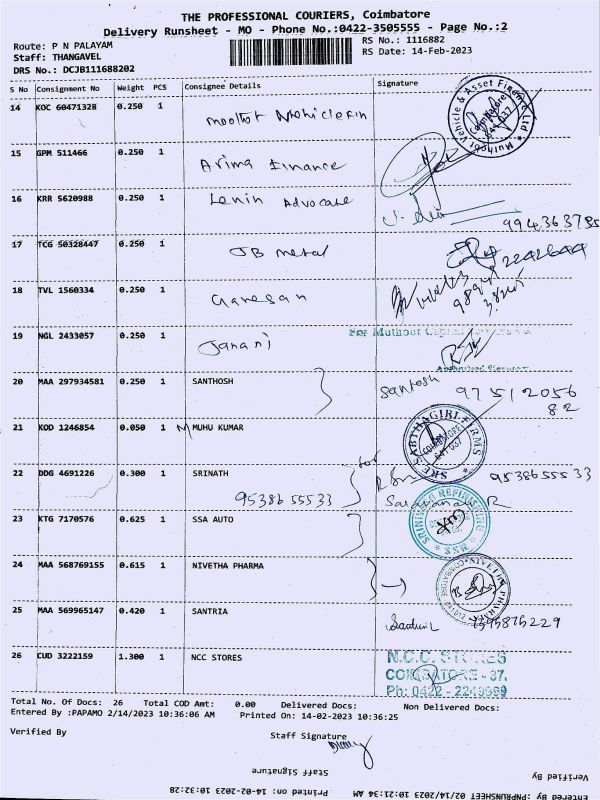 THE PROFESSIONAL COURIERS, Coimbatore
Delivery Runsheet - MO - Phone No.:0422-3505555 - Page No.:2
Route: P N PALAYAM
RS No.: 1116882
Staff: THANGAVEL
RS Date: 14-Feb-2023
DRS No.: DCJB111688202
S No Consignment No Weight PCS Consignee Details Signature
14 KOC 60471328 0.250 1
Muthoot Vehicle & Asset Finance Ltd
15 GPM 511466 0.250 1 Arima Finance
16 KRR 5620988 0.250 1 Lenin Advocate
17 TCG 50328447 0.250 1 JB metal 2242644
18 TVL 1560334 0.250 1 Ganesan
19 NGL 2433057 0.250 1 Janani
For Muthoot
Authorised
20 MAA 297934581 0.250 1 SANTHOSH Santosh 97512056
82
21 KOD 1246854 0.050 1 M MUHU KUMAR
SRE SABTHAGIRI FIRMS
22 DDG 4691226 0.300 1 SRINATH 9538655533
9538655533 Saravanan R
23 KTG 7170576 0.625 1 SSA AUTO
24 MAA 568769155 0.615 1 NIVETHA PHARMA
NIVETHA PHARMA
25 MAA 569965147 0.420 1 SANTRIA
26 CUD 3222159 1.300 1 NCC STORES N.C.C. STORES
COIMBATORE - 37.
Ph: 0422 - 2249989
Total No. Of Docs: 26 Total COD Amt: 0.00 Delivered Docs: Non Delivered Docs:
Entered By :PAPAMO 2/14/2023 10:36:06 AM Printed On: 14-02-2023 10:36:25
Verified By Staff Signature
Staff Signature Verified By
Printed on: 14-02-2023 10:32:28 Entered By :PNPRUNSHEET 02/14/2023 10:21:34 AM